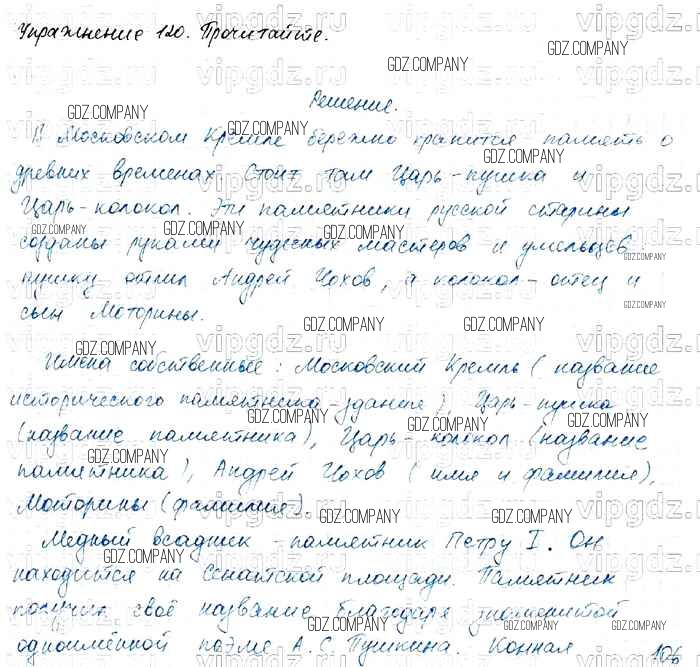 Упражнение 120. Прочитайте.
Решение.
В Московском Кремле бережно хранится память о
древних временах. Стоит там Царь-пушка и
Царь-колокол. Эти памятники русской старины
созданы руками чудесных мастеров и умельцев:
пушку отлил Андрей Чохов, а колокол - отец и
сын Моторины.
Имена собственные: Московский Кремль (название
исторического памятника-здание), Царь-пушка
(название памятника), Царь-колокол (название
памятника), Андрей Чохов (имя и фамилия),
Моторины (фамилия).
Медный всадник - памятник Петру I. Он
находится на Сенатской площади. Памятник
получил своё название благодаря знаменитой
одноимённой поэме А.С. Пушкина. Конная
106